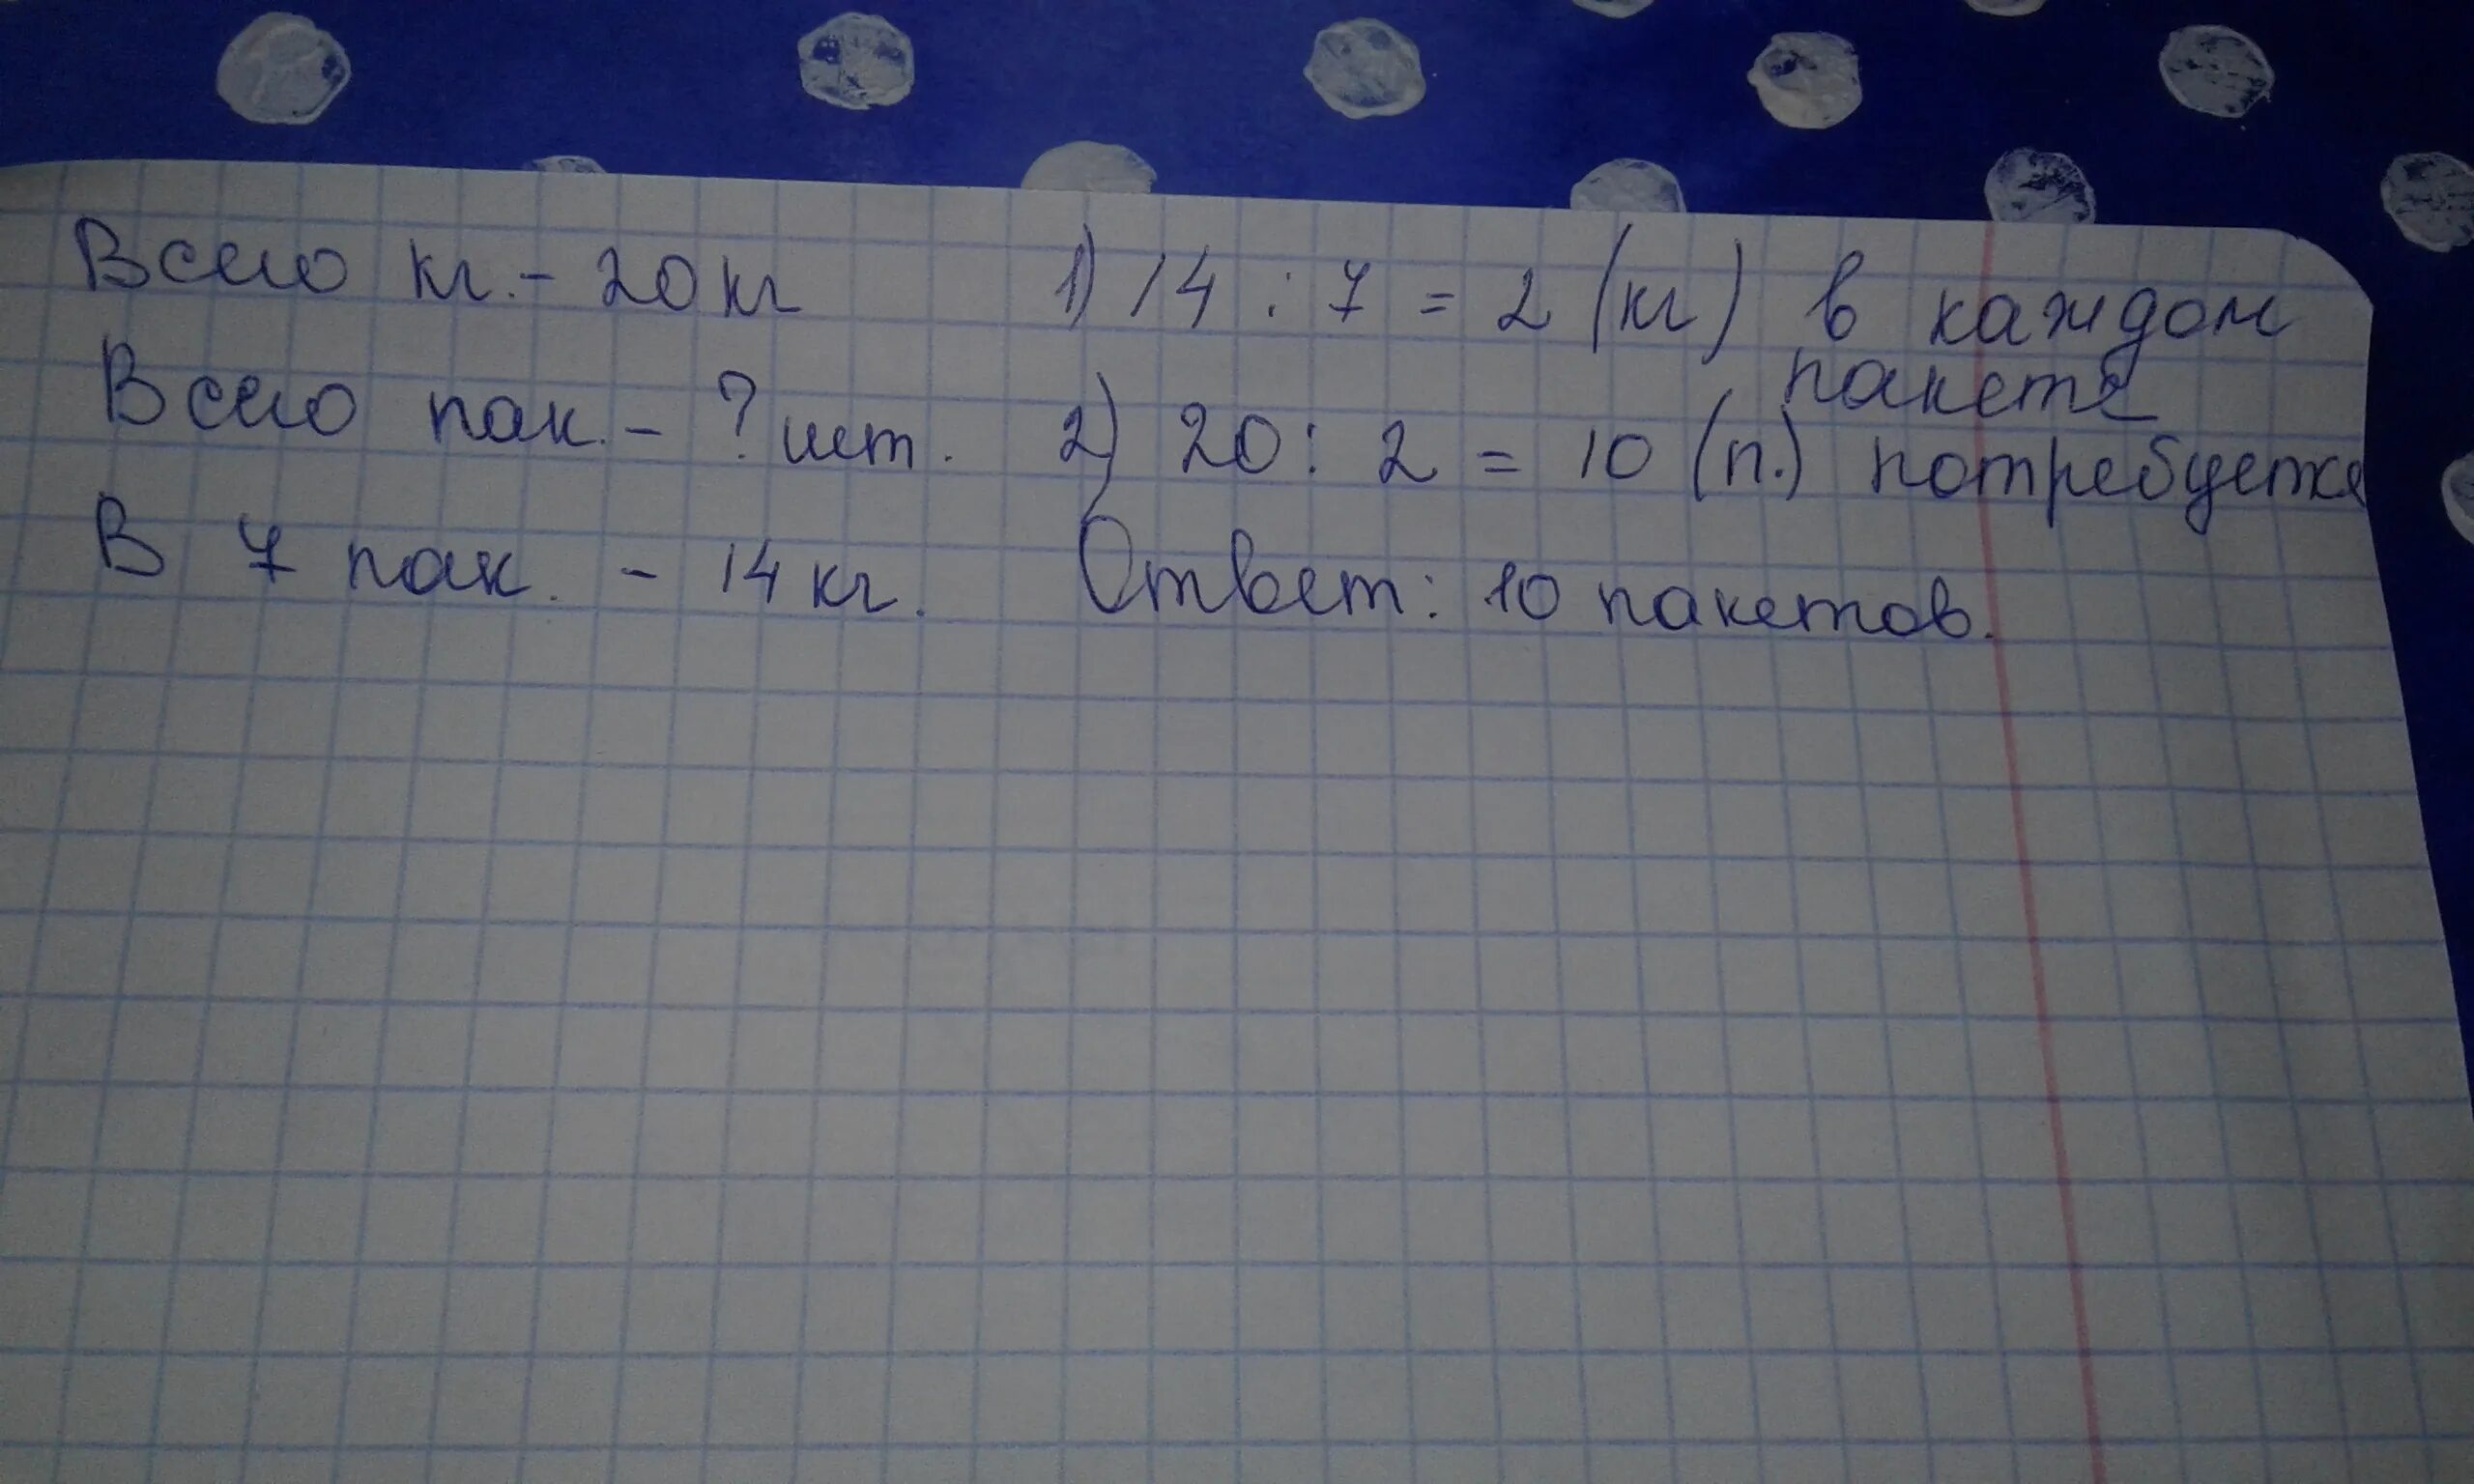 Всего кг. - 20 кг
Всего пак. - ? шт.
В 7 пак. - 14 кг.
1) 14 : 7 = 2 (кг) в каждом
пакете
2) 20 : 2 = 10 (п.) потребуется
Ответ: 10 пакетов.